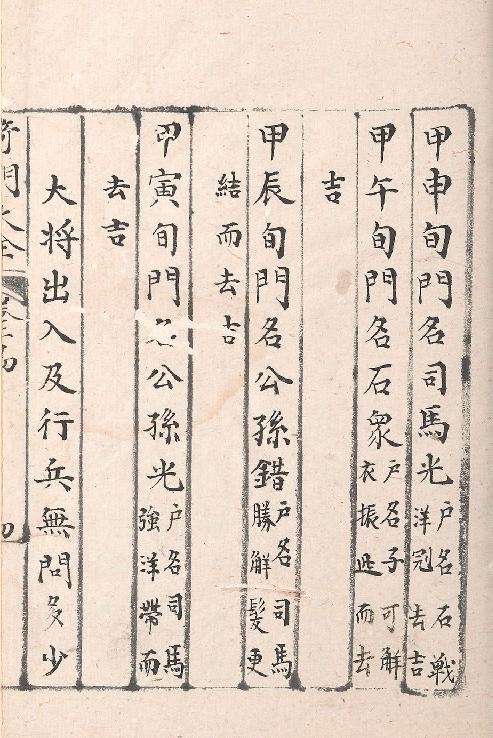 甲申旬門名司馬光户名石戰洋冠去吉
甲午旬門名石眾户名子可解衣振迯而去
吉
甲辰旬門名公孫錯户名司馬勝解髮更
結而去吉
甲寅旬門名公孫光户名司馬強洋帶而
去吉
大将出入及行兵無問多少
奇門大全